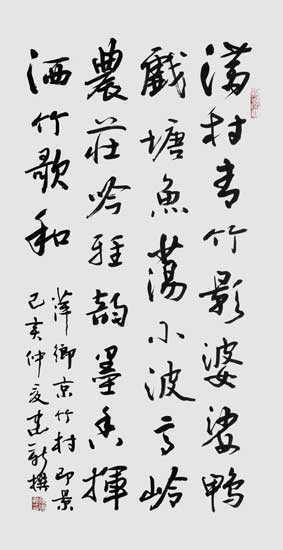 满村青竹影婆娑鸭
戲塘魚荡小波高岭
農莊吟雅韵墨香揮
洒竹歌和
萍鄉京竹村即景
己亥仲夏建新撰